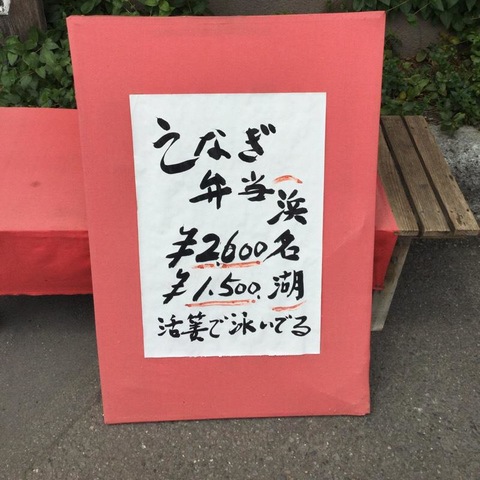 うなぎ
弁当
(浜名湖)
¥2,600
¥1,500.
活簀で泳いでる